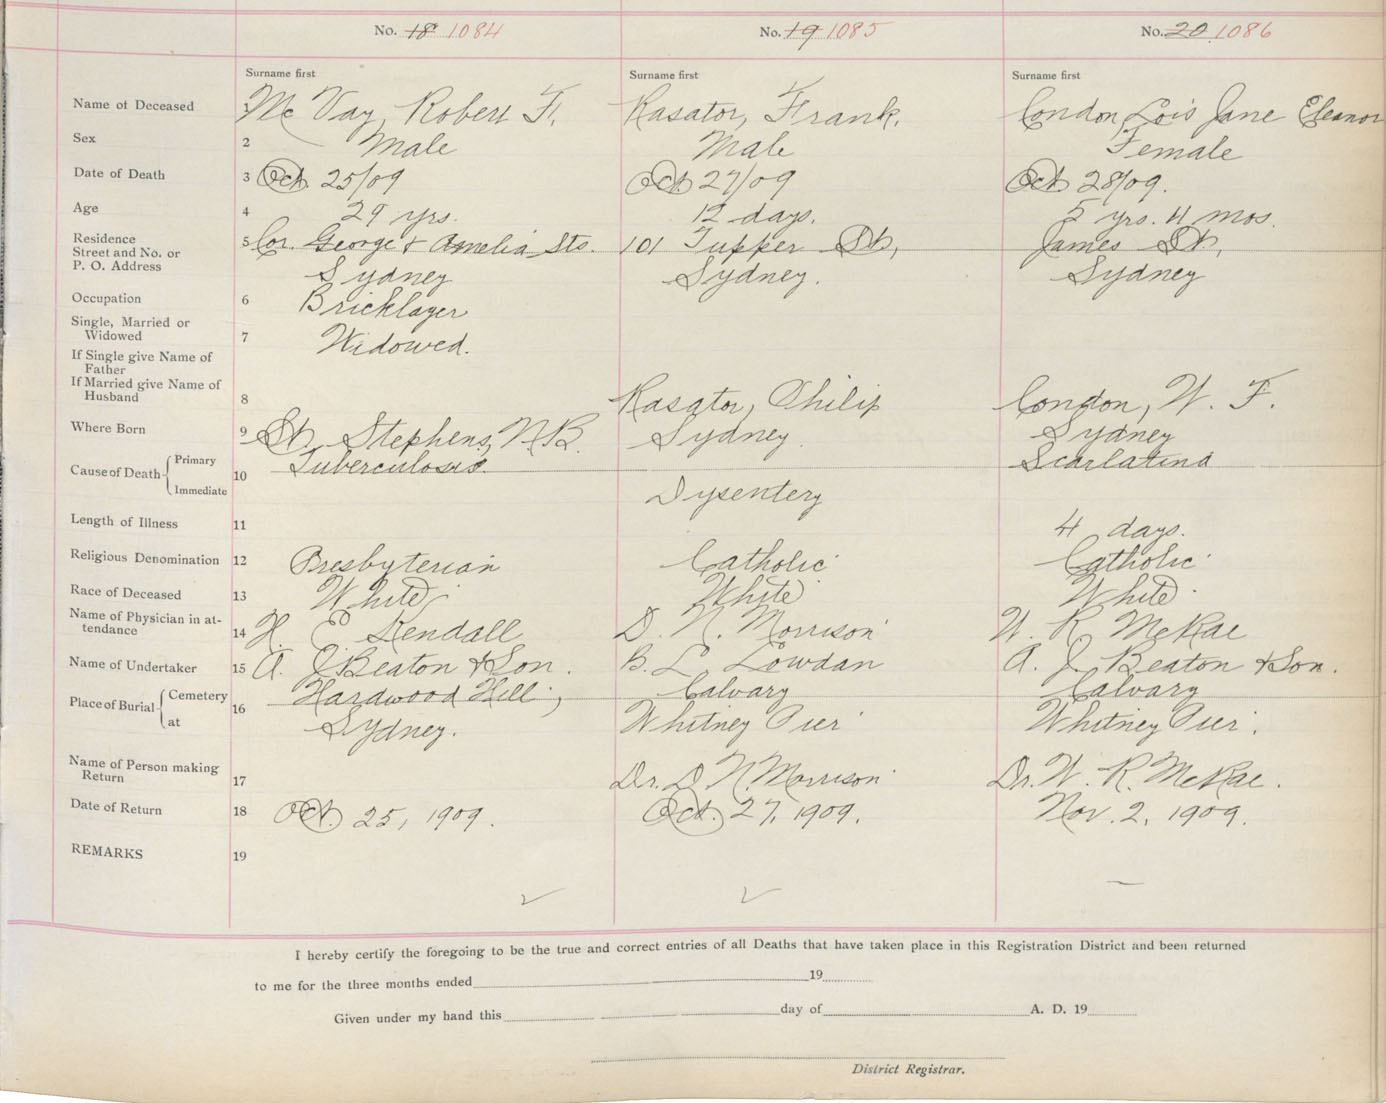 No. 18 1084 No. 19 1085 No. 20 1086
Surname first Surname first Surname first
Name of Deceased 1 Mc Vay, Robert F. Kasator, Frank. Condon, Lois Jane Eleanor
Sex 2 Male Male Female
Date of Death 3 Oct 25/09 Oct 27/09 Oct 28/09.
Age 4 29 yrs. 12 days. 5 yrs. 4 mos.
Residence 5 Cor. George & Amelia Sts. 101 Tupper St, James St,
Street and No. or
P. O. Address Sydney Sydney. Sydney
Occupation 6 Bricklayer
Single, Married or
Widowed 7 Widowed.
If Single give Name of
Father
If Married give Name of
Husband 8 Kasator, Philip Condon, W. F.
Where Born 9 St, Stephens, N.B. Sydney. Sydney
Cause of Death Primary Tuberculosis. Scarlatina
10
Immediate Dysentery
Length of Illness 11 4 days.
Religious Denomination 12 Presbyterian Catholic Catholic
Race of Deceased 13 White White White.
Name of Physician in at-
tendance 14 H. E. Kendall D. N. Morrison W. R. McRae
Name of Undertaker 15 A. J. Beaton & Son. B. L. Lowdan A. J. Beaton & Son.
Place of Burial Cemetery Hardwood Hill, Calvary Calvary
16
at Sydney. Whitney Pier Whitney Pier.
Name of Person making
Return 17 Dr. D. N. Morrison Dr. W. R. McRae.
Date of Return 18 Oct. 25, 1909. Oct. 27, 1909. Nov. 2, 1909.
REMARKS 19
I hereby certify the foregoing to be the true and correct entries of all Deaths that have taken place in this Registration District and been returned
to me for the three months ended 19
Given under my hand this day of A. D. 19
District Registrar.